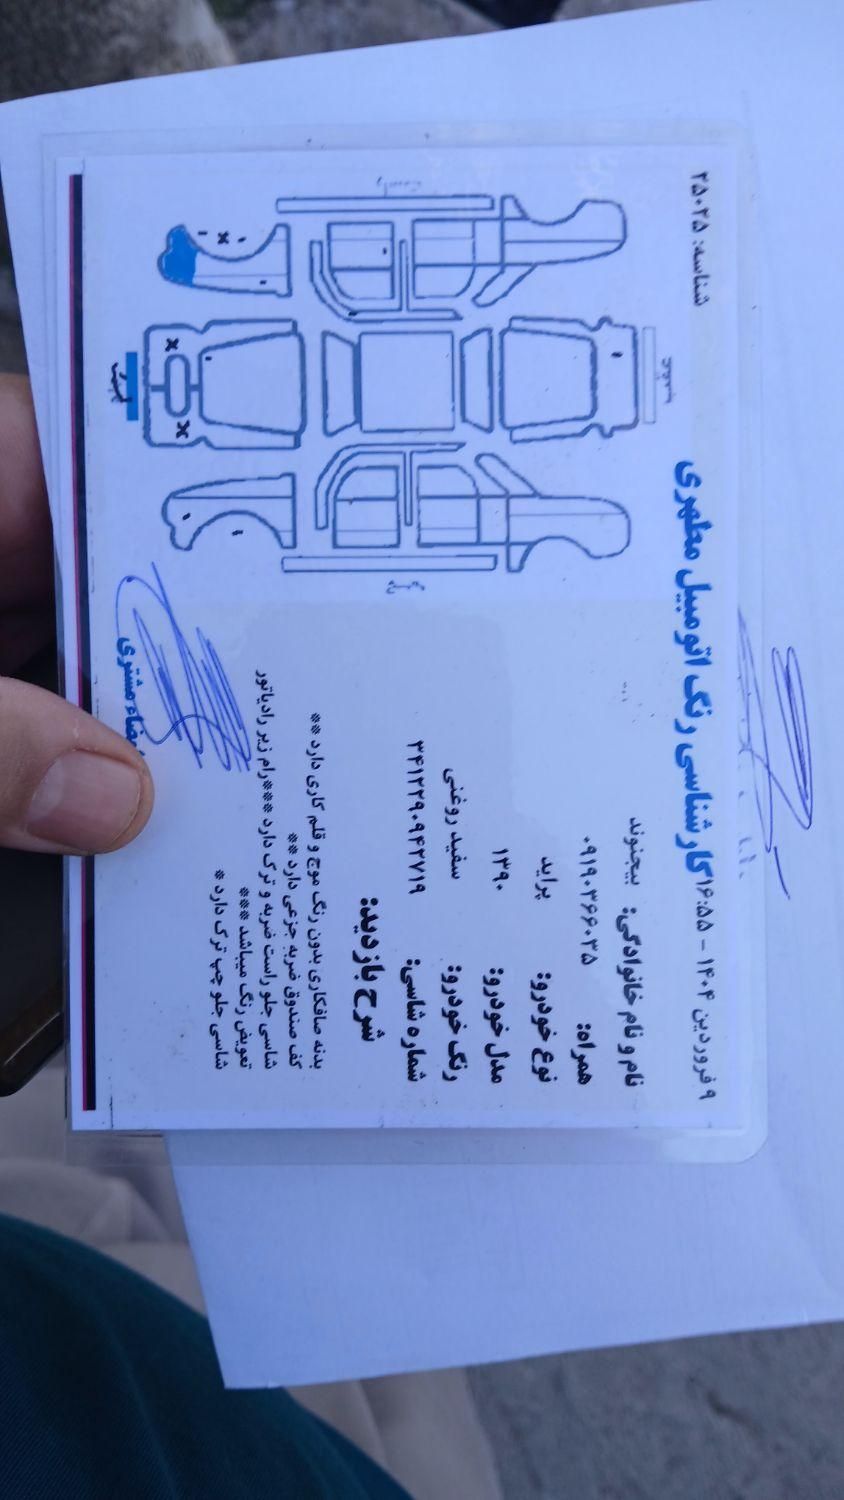 شناسه: ۲۵۰۲۵
کارشناسی رنگ اتومبیل مطهری
۹ فروردین ۱۴۰۴ - ۱۶:۵۵
نام و نام خانوادگی: بیجنوند
همراه: ۰۹۱۹۰۳۶۶۰۳۵
نوع خودرو: پراید
مدل خودرو: ۱۳۹۰
رنگ خودرو: سفید روغنی
شماره شاسی: ۳۴۱۲۲۹۰۹۴۲۷۱۹
شرح بازدید:
بدنه صافکاری بدون رنگ موج و قلم کاری دارد **
کف صندوق ضربه جزعی دارد **
شاسی جلو راست ضربه و ترک دارد ***رام زیر رادیاتور
تعویض رنگ میباشد ***
شاسی جلو چپ ترک دارد *
امضاء مشتری
راست
چپ